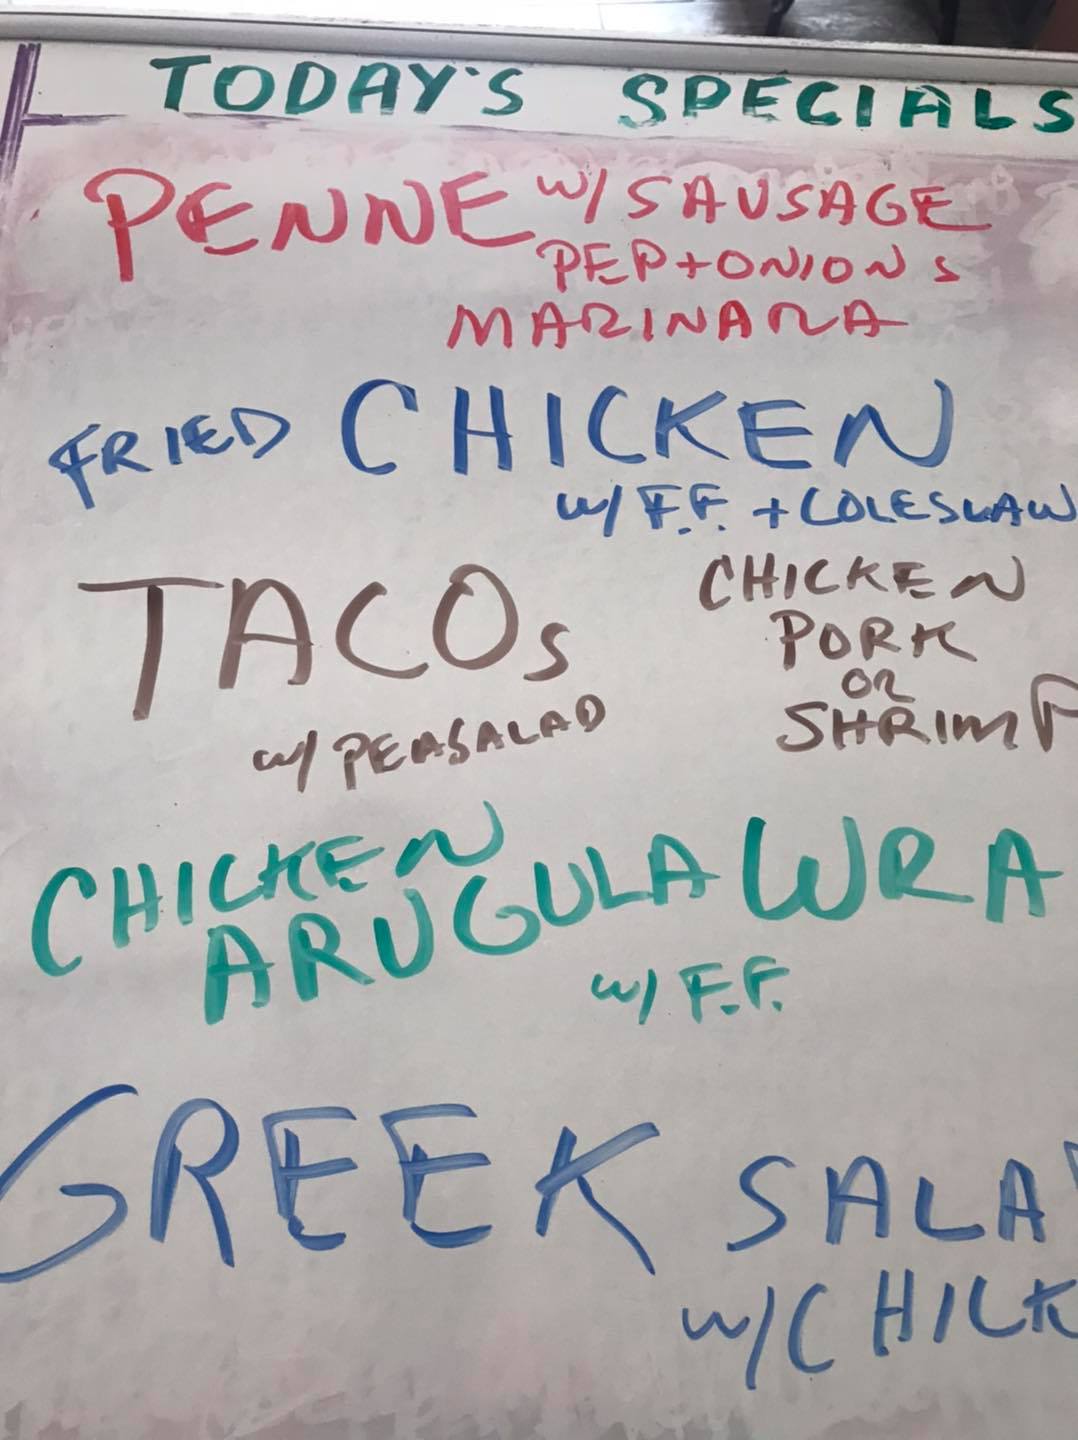 TODAY'S SPECIALS
PENNE w/ SAUSAGE
PEP + ONIONS
MARINARA
FRIED CHICKEN
w/ F.F. + COLESLAW
TACOS
w/ PEASALAD
CHICKEN
PORK
OR
SHRIMP
CHICKEN
ARUGULA WRA
w/ F.F.
GREEK SALA
w/ CHICK